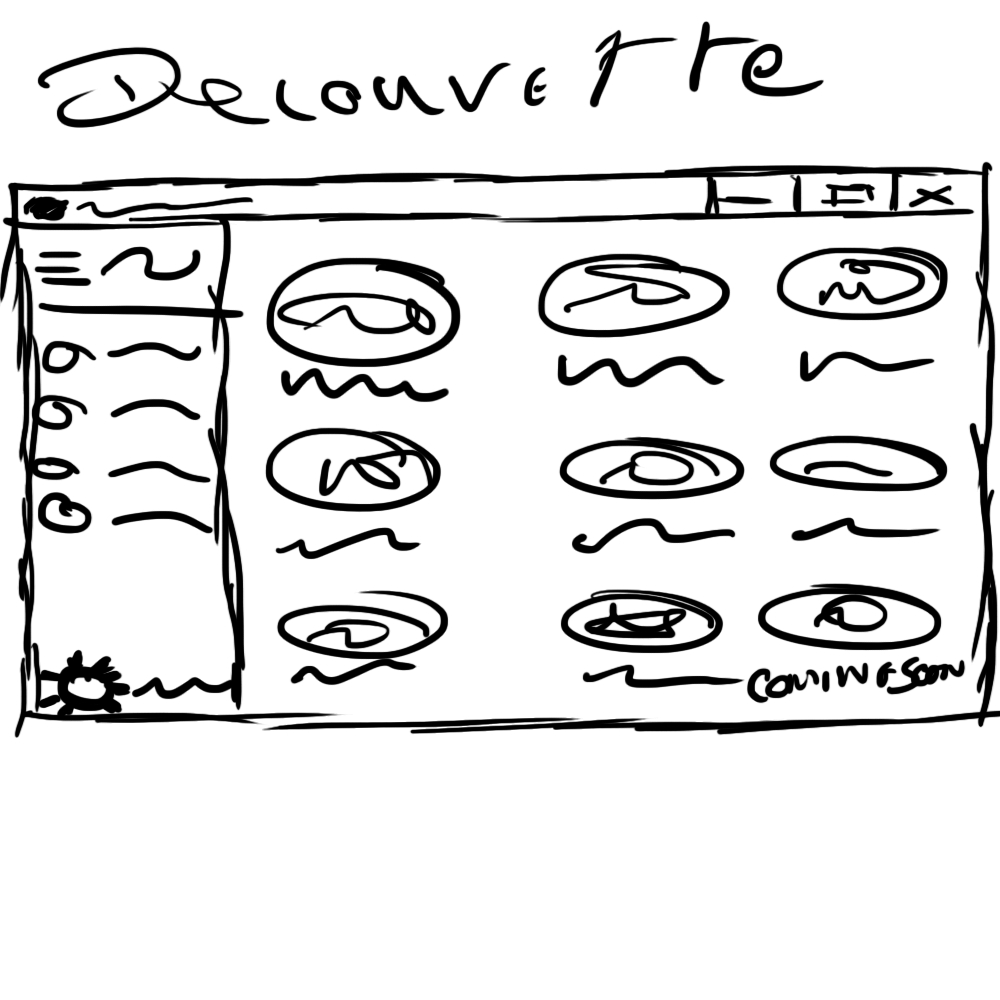 Decouverte
COMING SOON